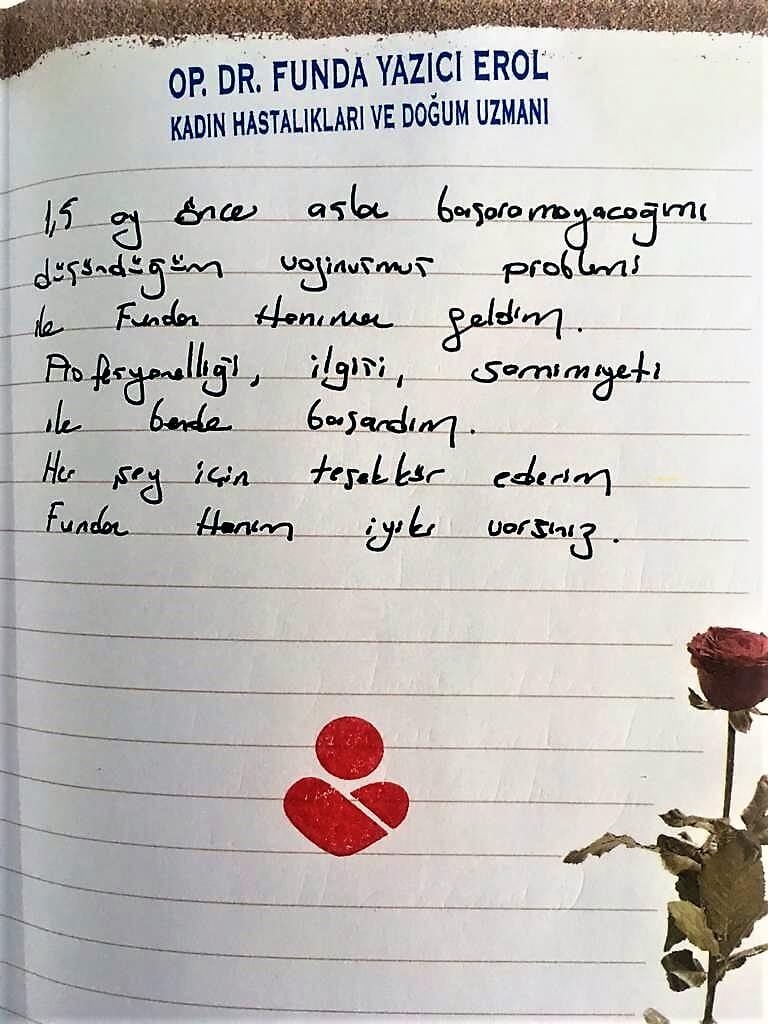 OP. DR. FUNDA YAZICI EROL
KADIN HASTALIKLARI VE DOĞUM UZMANI
1,5 ay önce asla başaramayacağımı
düşündüğüm vajinusmus problemi
ile Funda Hanıma geldim.
Profesyonelliği, ilgisi, samimiyeti
ile bende başardım.
Her şey için teşekkür ederim
Funda Hanım iyiki varsınız.